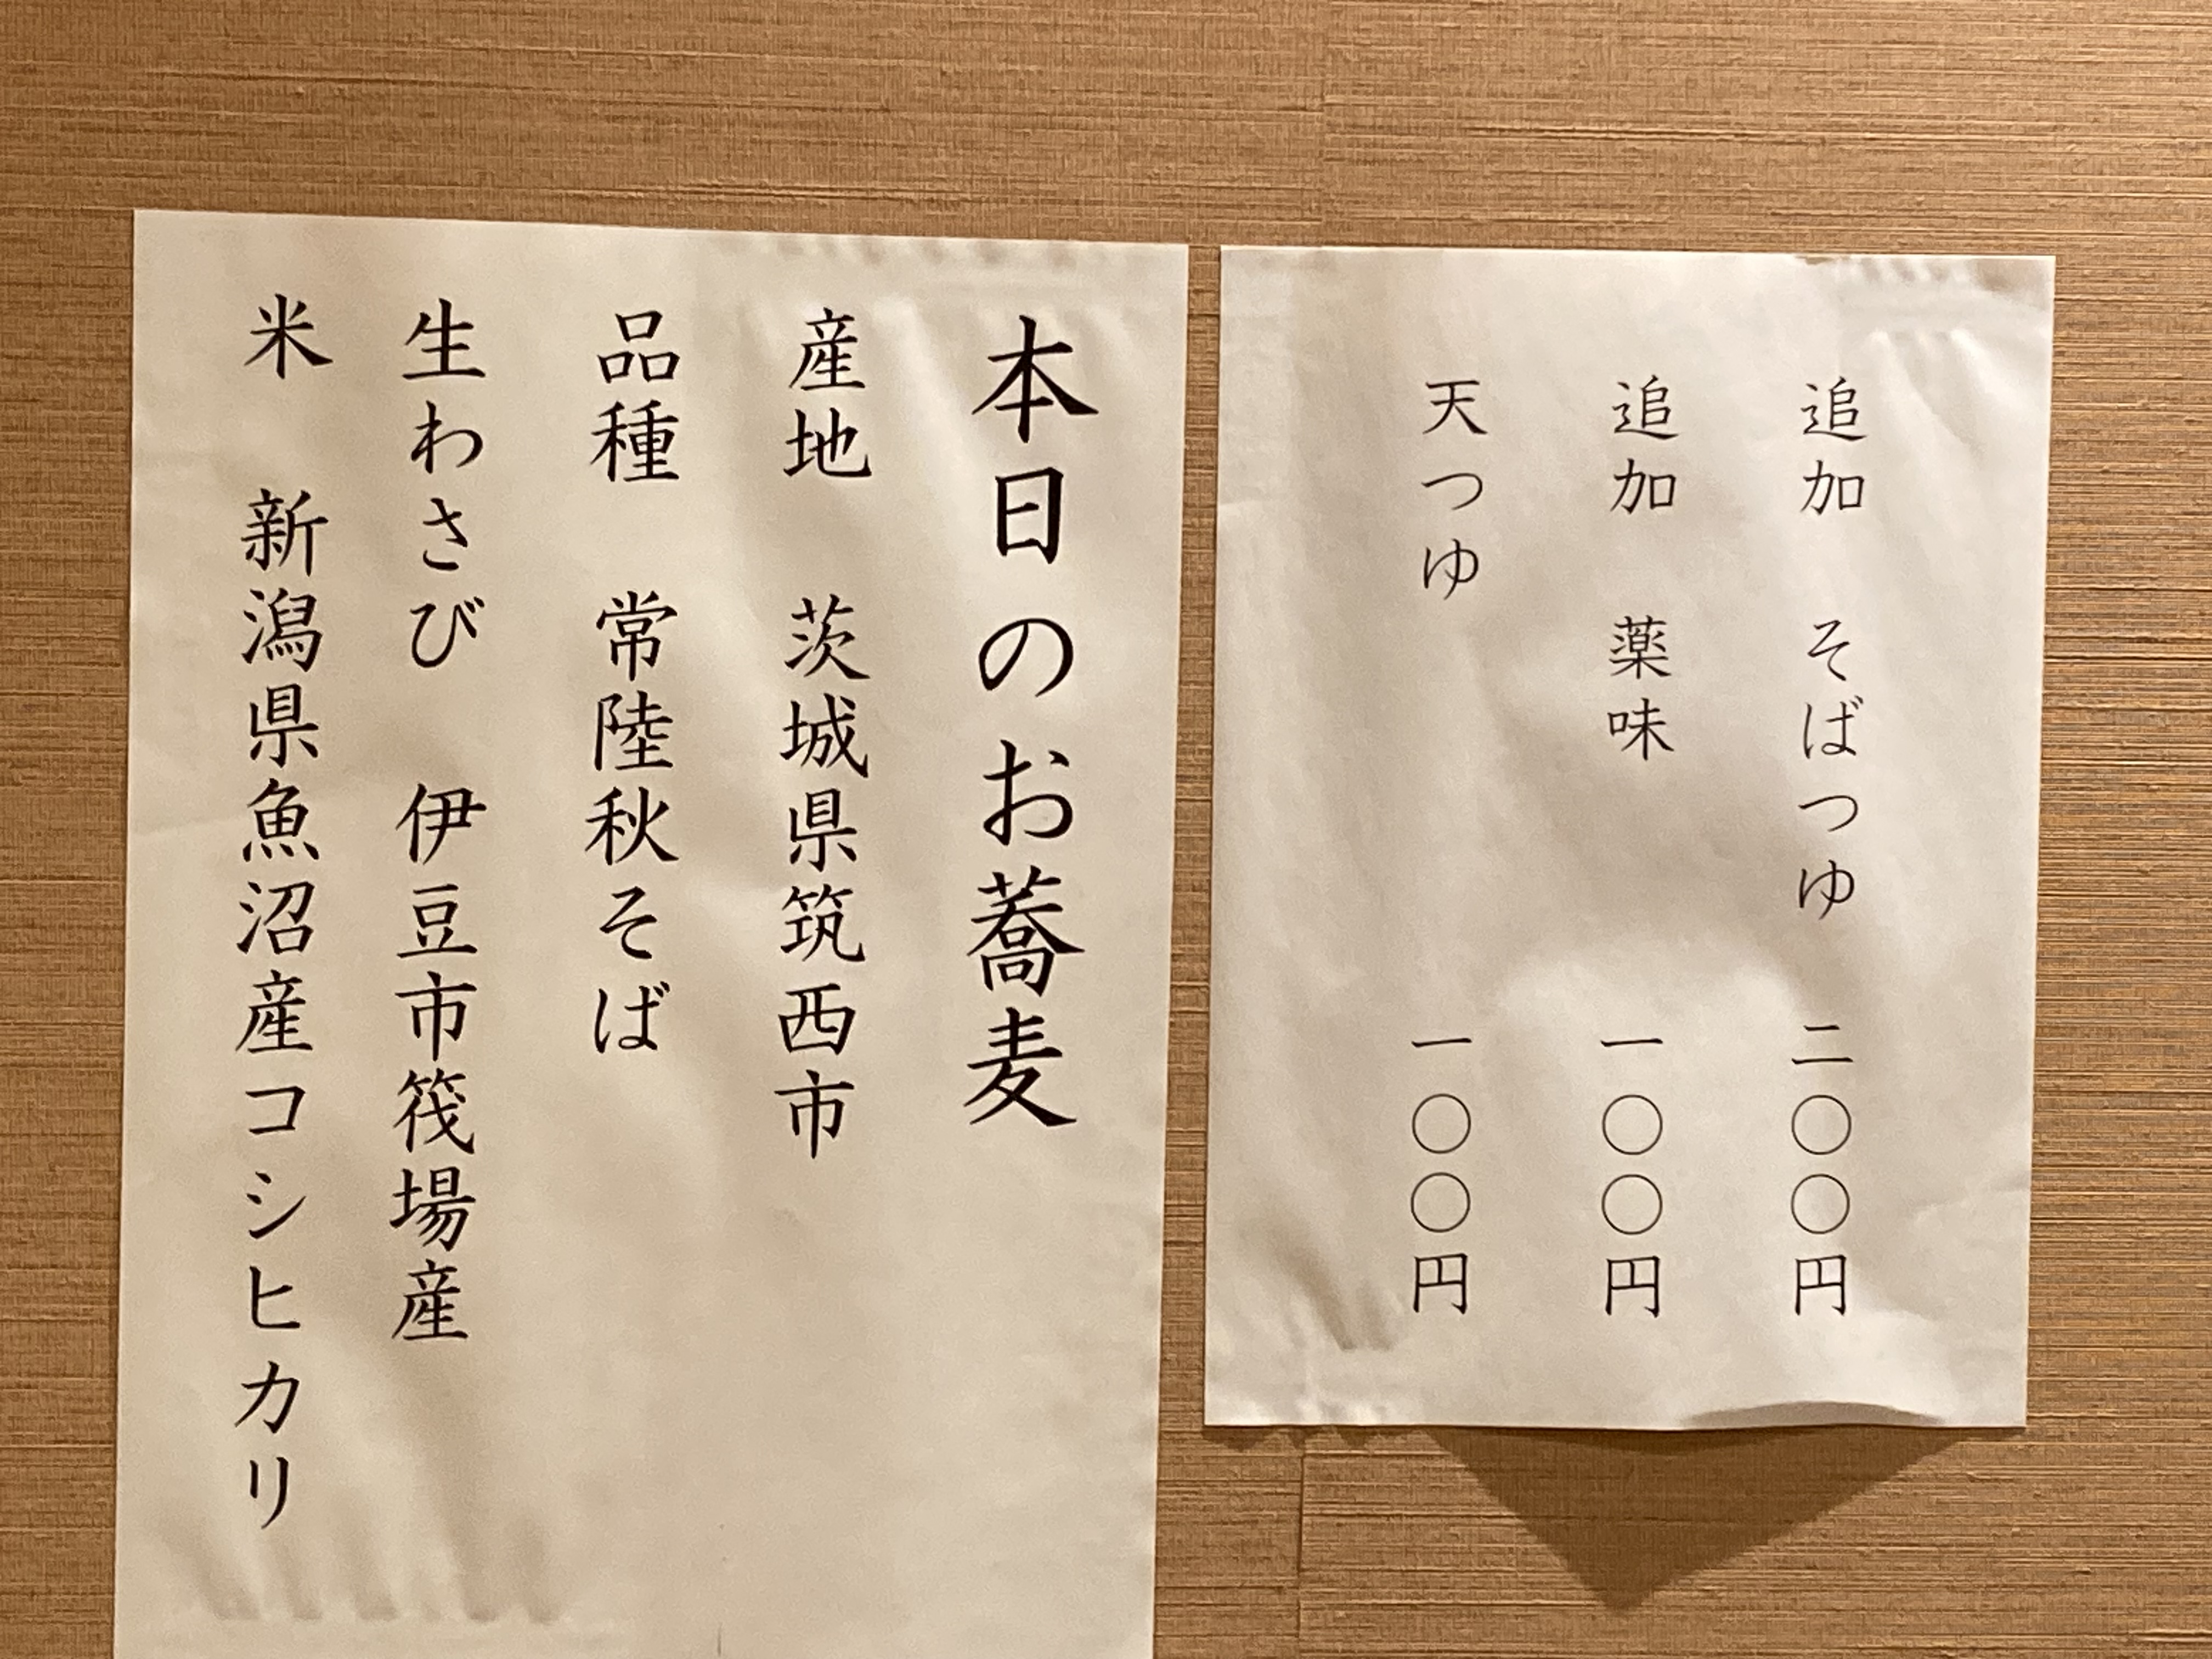 追加　そばつゆ　二〇〇円
追加　薬味　一〇〇円
天つゆ　一〇〇円
本日のお蕎麦
産地　茨城県筑西市
品種　常陸秋そば
生わさび　伊豆市筏場産
米　新潟県魚沼産コシヒカリ